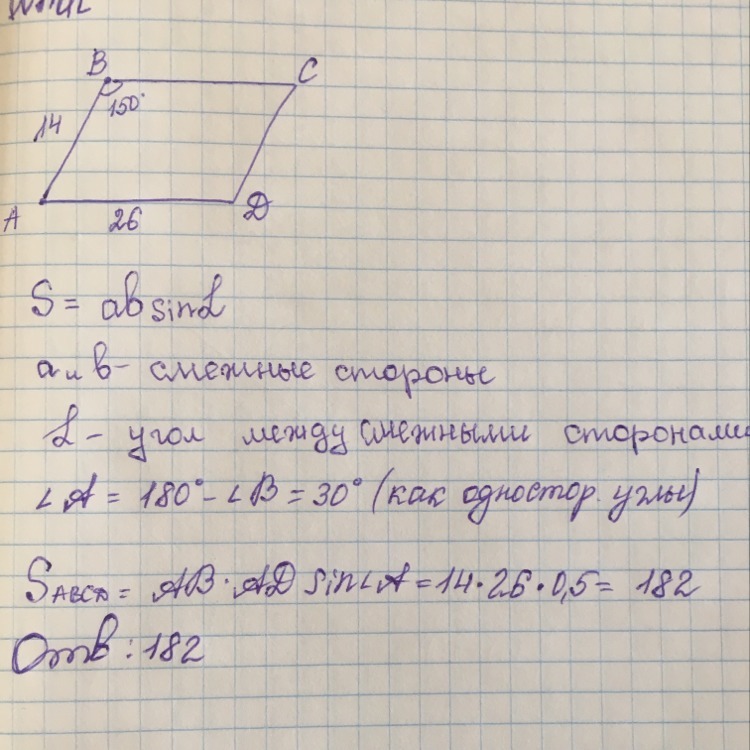 B
C
150°
14
A
26
D
S = ab sin α
a и b - смежные стороны
α - угол между смежными сторонами
∠A = 180° - ∠B = 30° (как одностор. углы)
S ABCD = AB · AD sin∠A = 14 · 26 · 0,5 = 182
Отв : 182